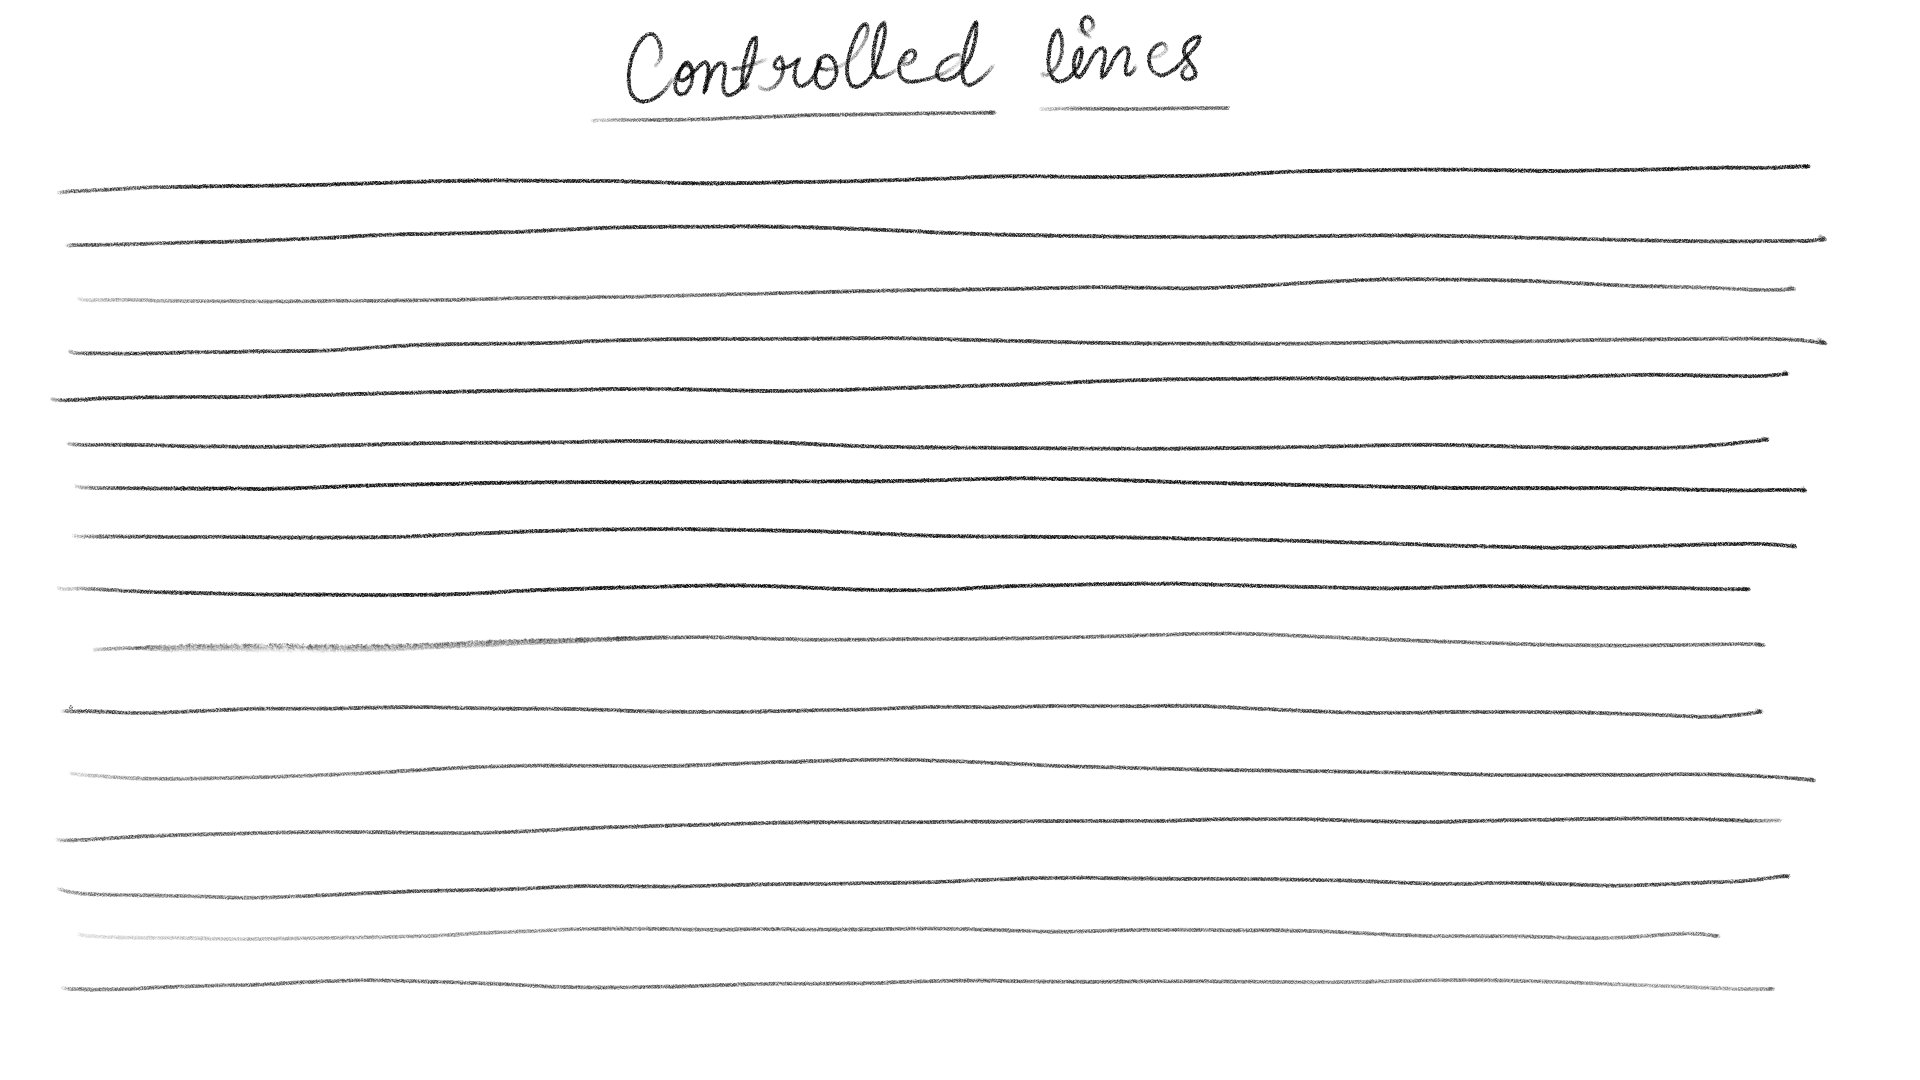 Controlled lines